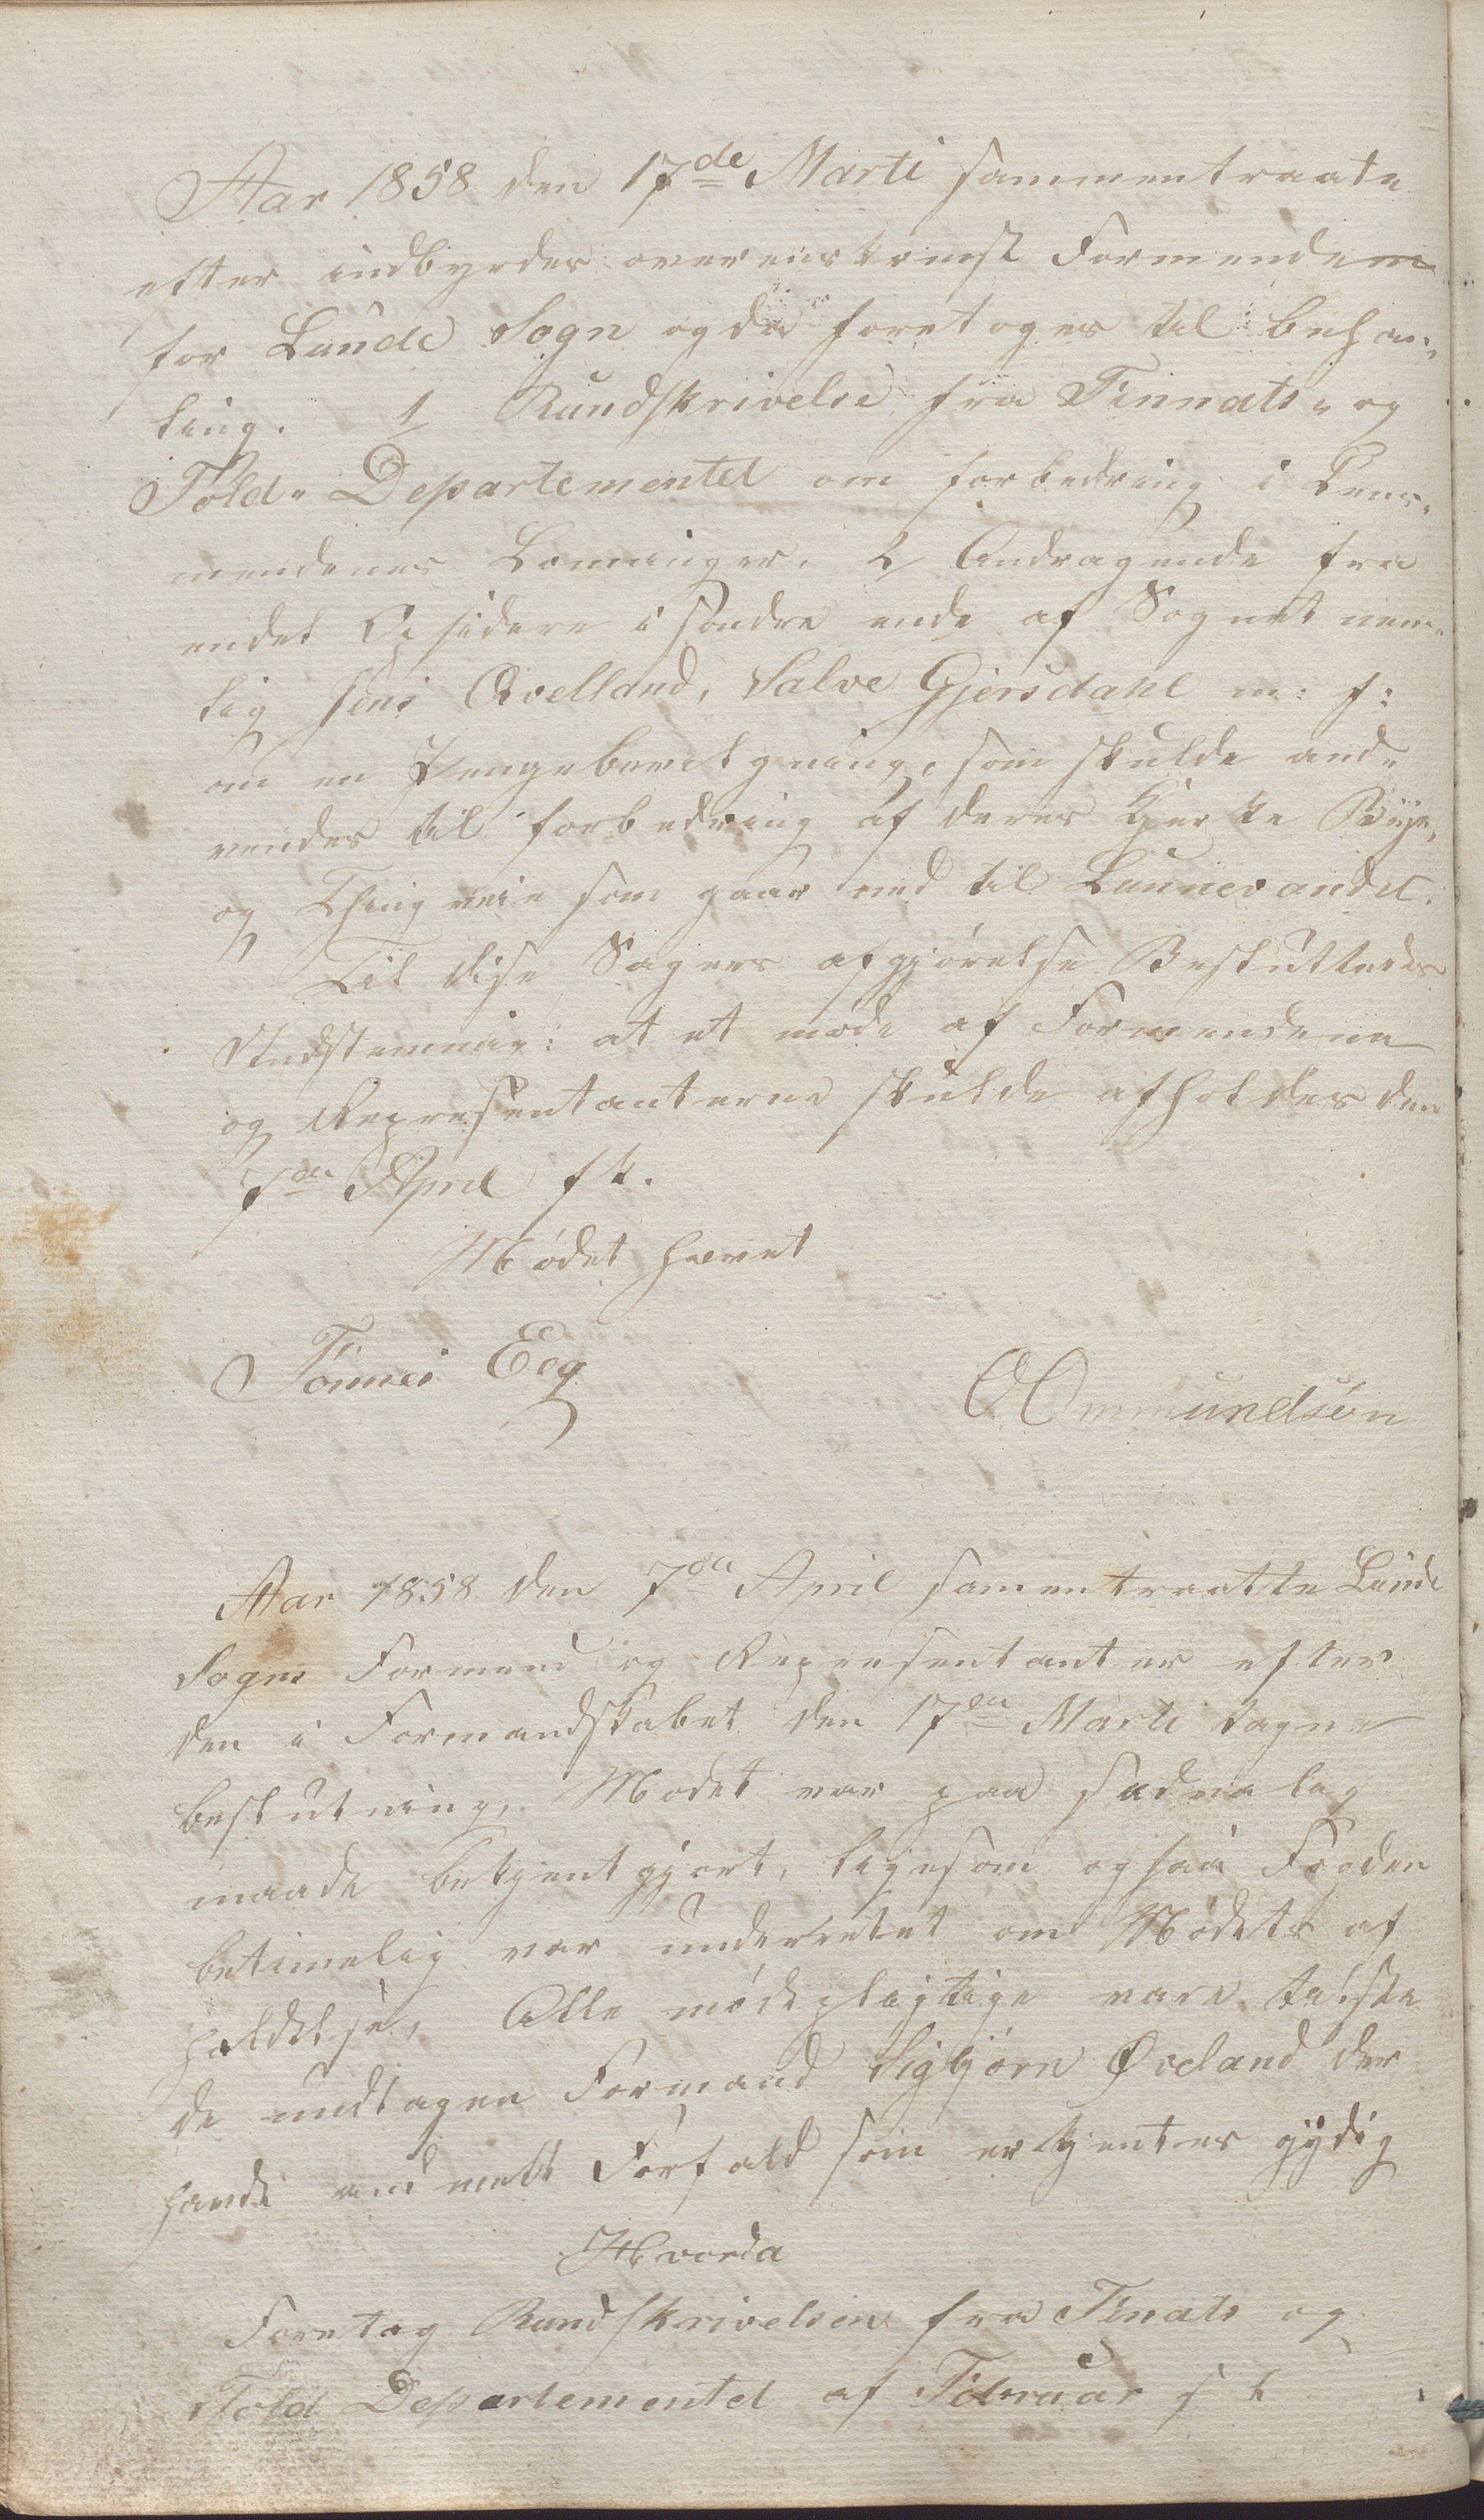 Aar 1858 den 17de Marti sammentraate
efter indbyrdes overenskomst Formendene
for Lunde Sogn og da foretoges til behan-
ling. 1/ Rundskrivelse fra Finnats- og
Told- Departementet om forbedring i Lens-
mendenes Lønninger. 2/ Andragende fra
endel Opsidere i søndre ende af Sognet nem-
lig Jens Qvelland, Salve Gjersdahl m: f:
om en Pengebevilgning, som skulde and-
vendes til forbedring af deres Kjerke Bÿe,
og Thingveie som gaar ned til Lunnevandet.
Til dise Sagers afgjørelse Besluttedes
Endstemmig: at et møde af Formendene
og Representanterne skulde afholdes den
7de April f k.
Mødet hævet
Tønnes Eeg
O Ommundsøn
Aar 1858 den 7de April samentraatte Lunde
Sogns Formend og Representanter efter
den i Formandskabet den 17de Marti tagne
beslutning. Mødet var paa sædvalig
maade bekjentgjort, ligesom ogsaa Fogden
betimelig var underrettet om Mødets af
holdelse. Alle mødepligtige vare tilstæ
de undtagen Formand Sigbjørn Øveland der
havde anmelt Forfald som erkjentes gÿdig
Hvorda
Foretog Rundskrivelsen fra Finats og
Told Departementet af Februar